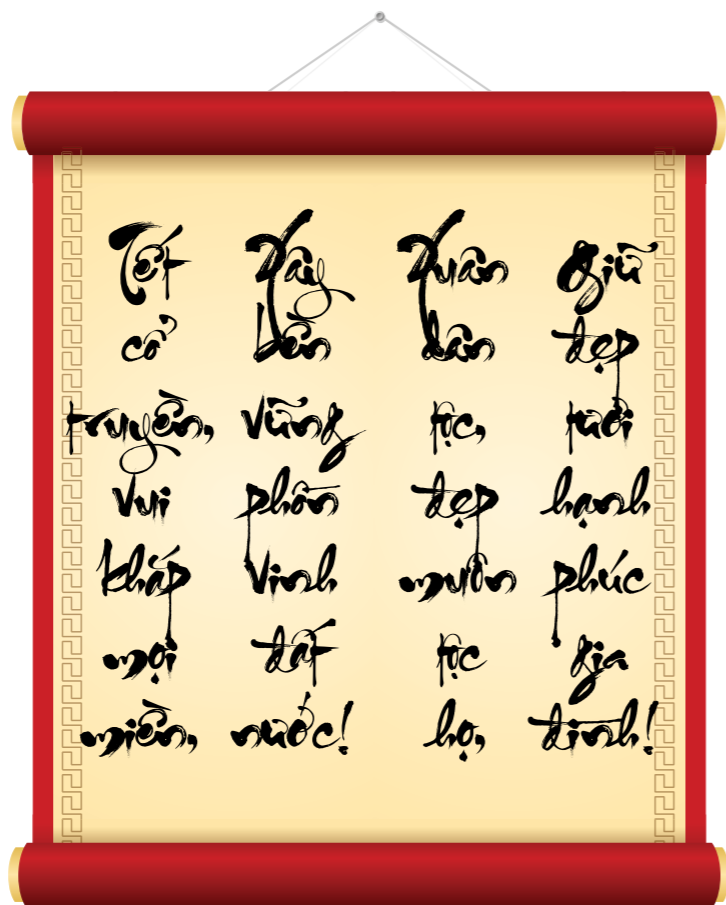 Tết cổ truyền, vui khắp mọi miền,
Xây bền vững phồn vinh đất nước!
Xuân dân tộc, đẹp muôn tộc họ,
Giữ đẹp tươi hạnh phúc gia đình!